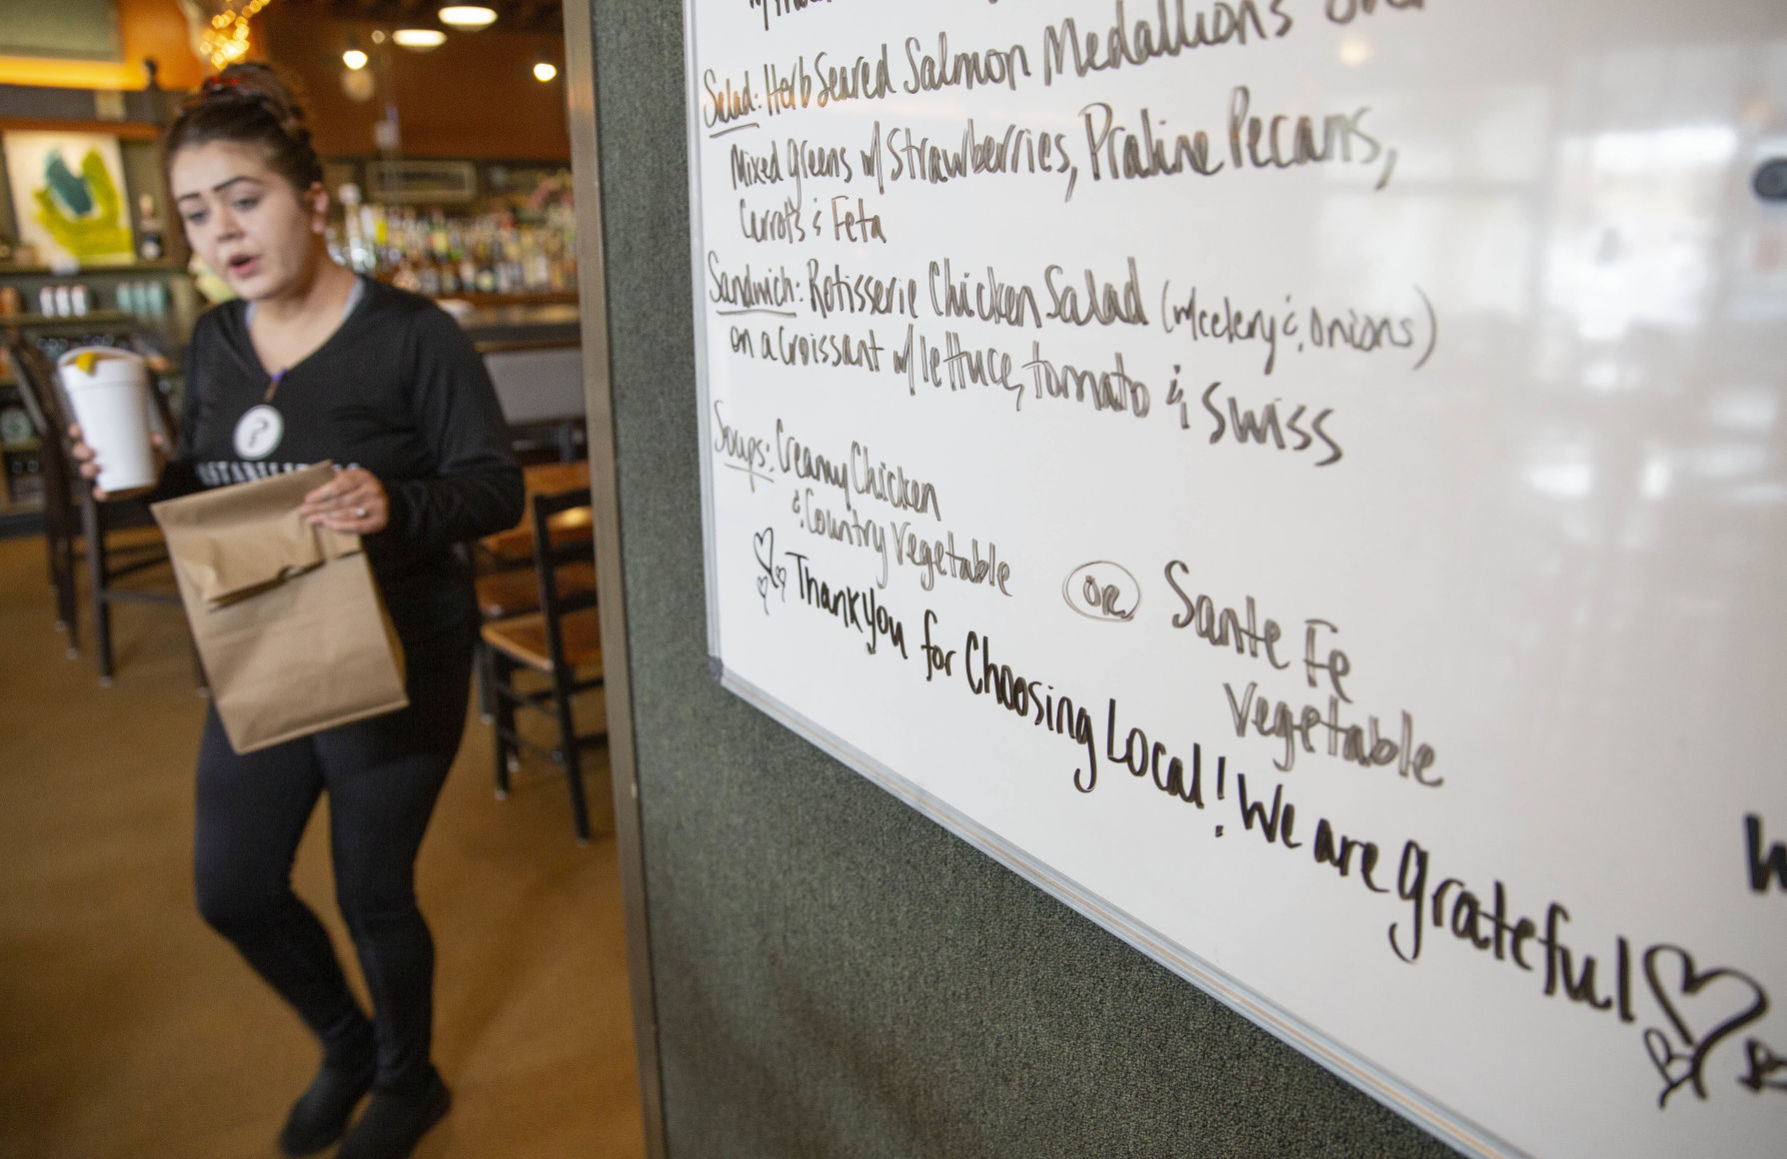 Salad: Herb Seared Salmon Medallions over
Mixed greens w/ Strawberries, Praline Pecans,
Carrots & Feta
Sandwich: Rotisserie Chicken Salad (w/celery & onions)
on a Croissant w/ lettuce, tomato & Swiss
Soups: Creamy Chicken
& Country Vegetable OR Sante Fe
Vegetable
Thank you for Choosing Local! We are grateful
?